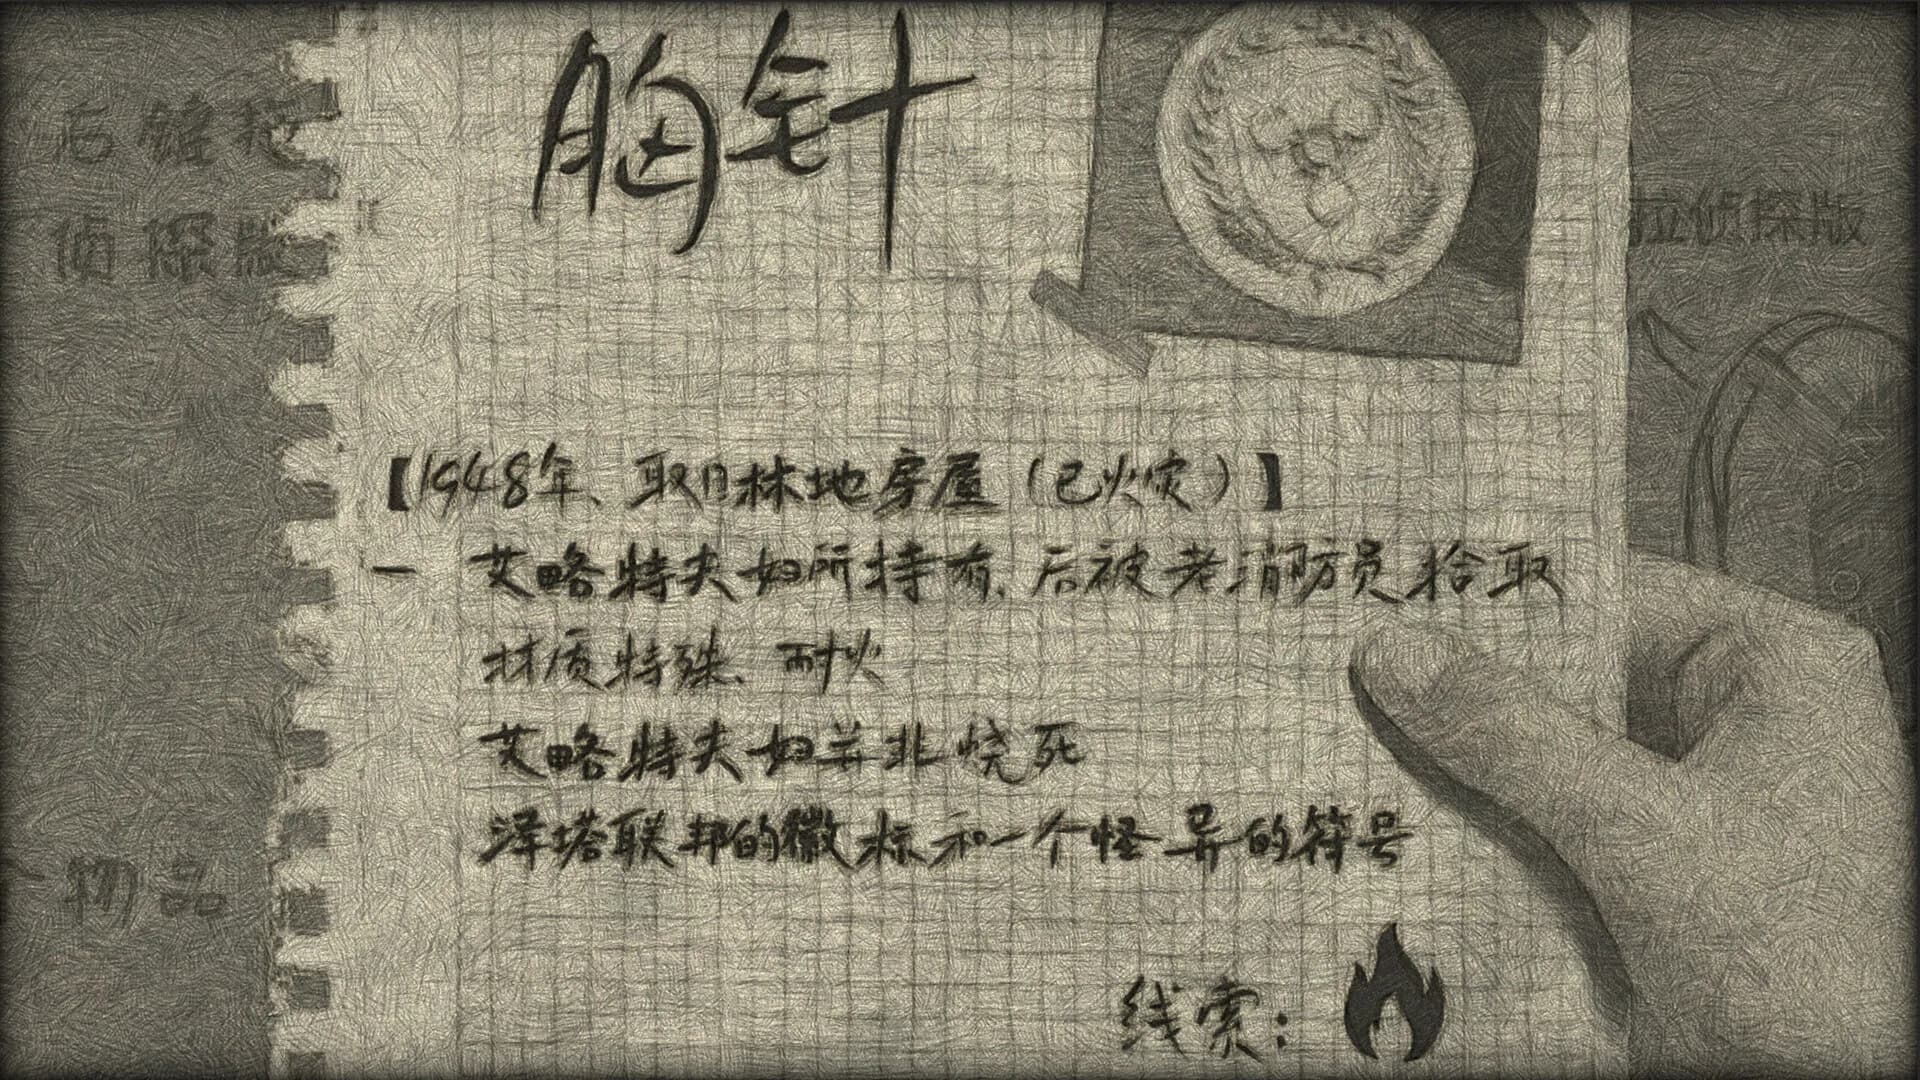 胸针
【1948年、取自林地房屋（已火灾）】
一 艾略特夫妇所持有、后被老消防员拾取
材质特殊、耐火
艾略特夫妇并非烧死
泽塔联邦的徽标和一个怪异的符号
线索：
侦探版
侦探版
物品